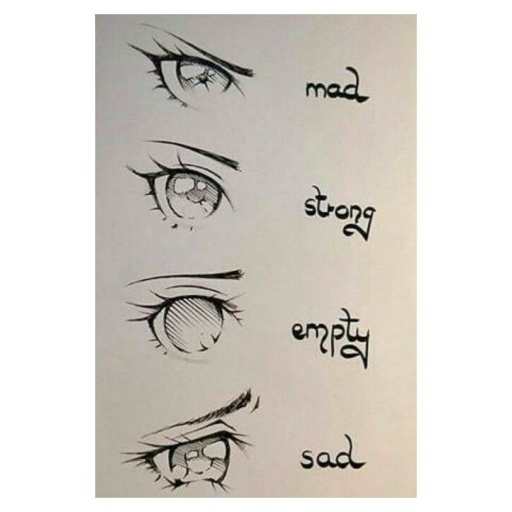 mad
strong
empty
sad